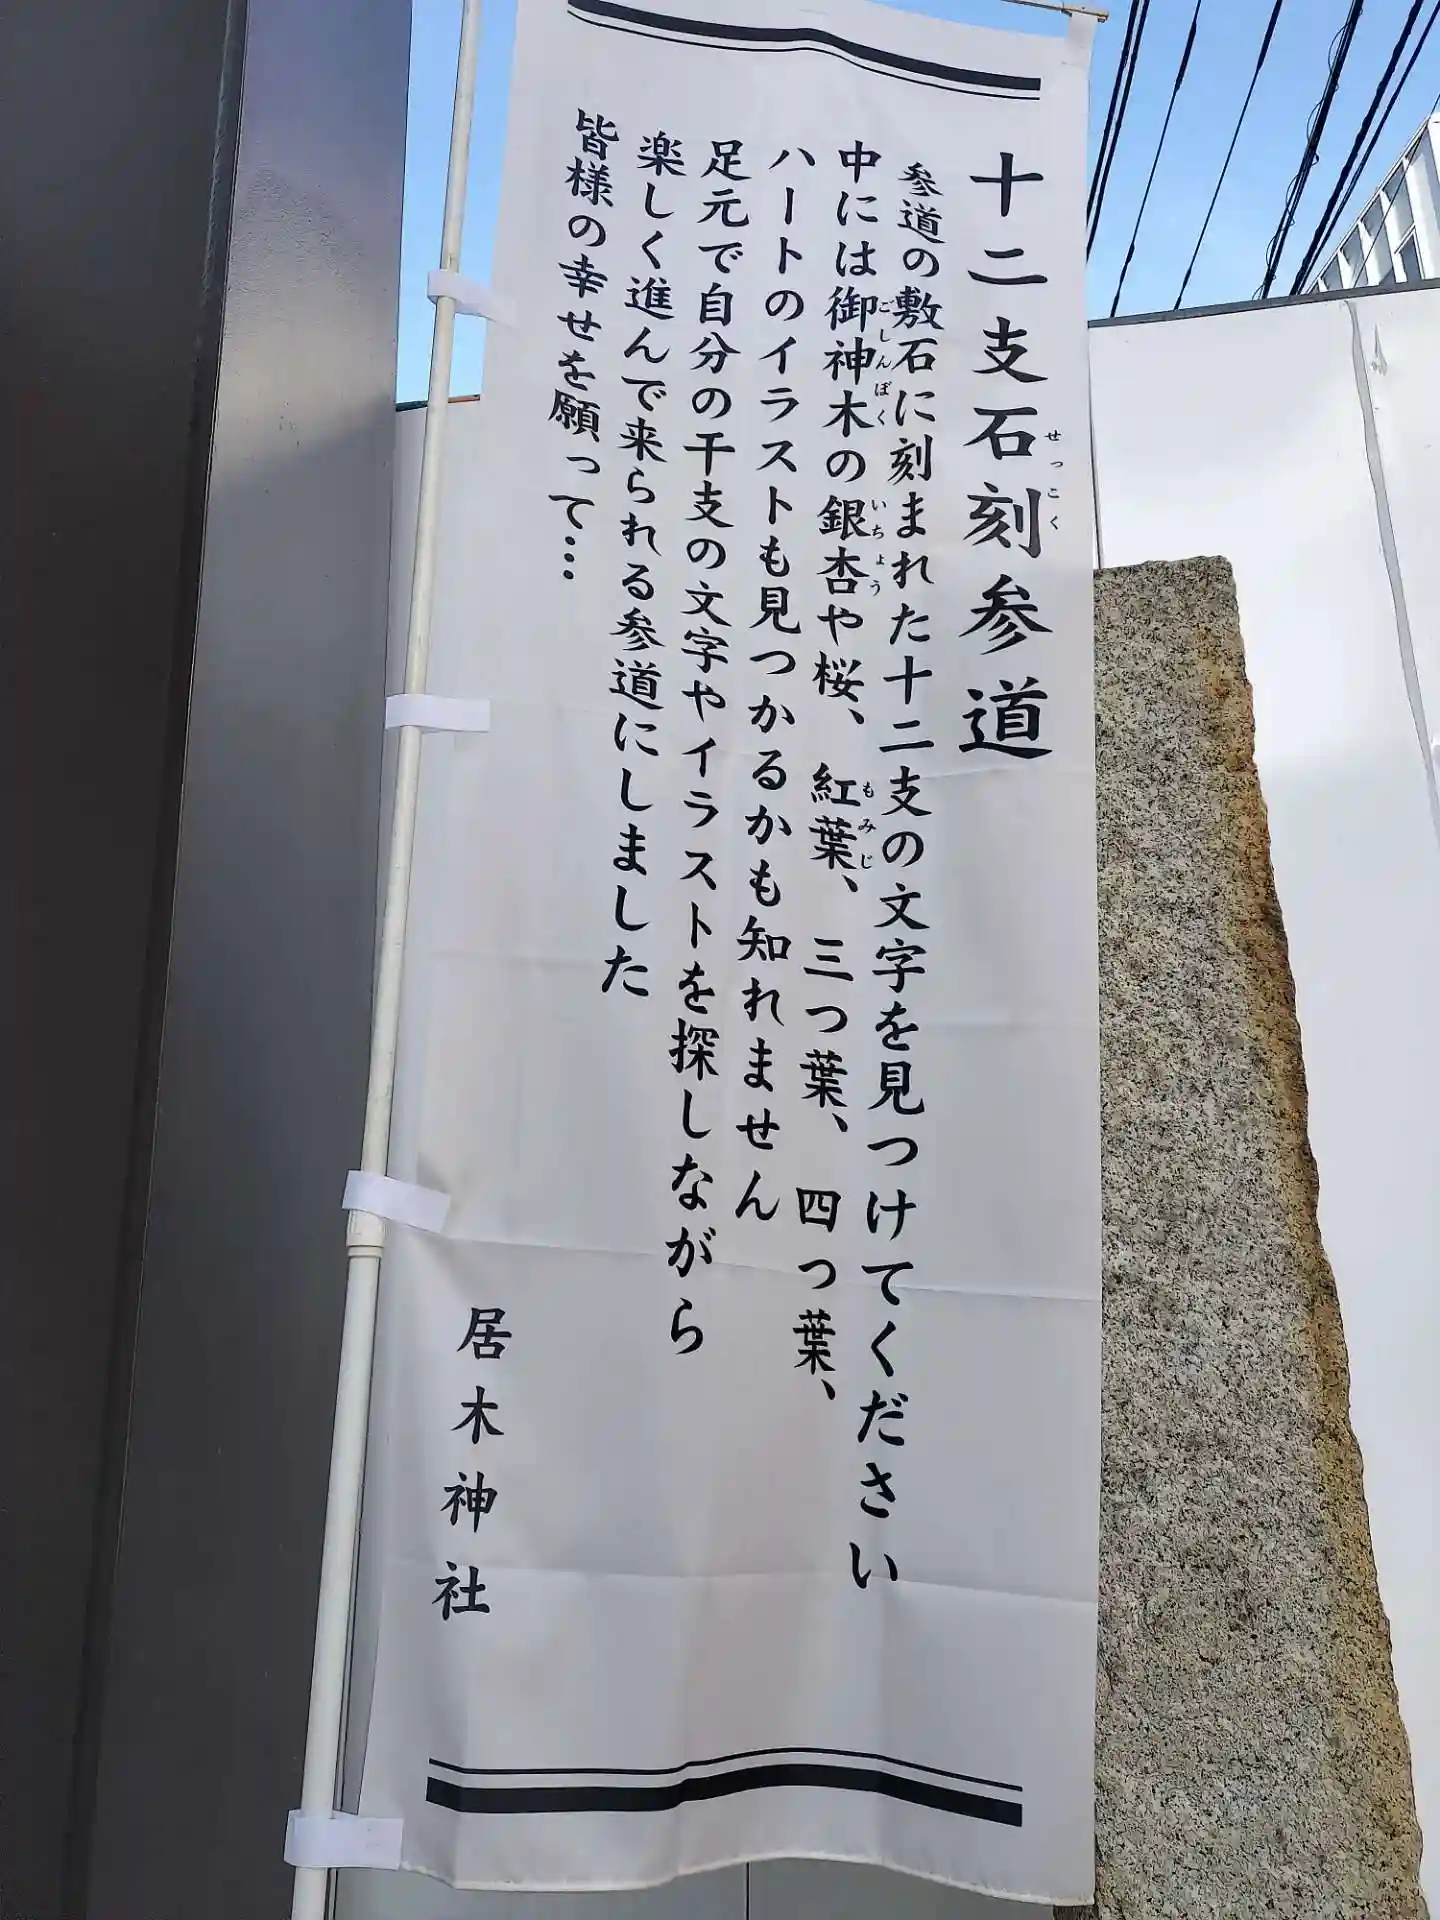 十二支石刻参道
せっこく
参道の敷石に刻まれた十二支の文字を見つけてください
中には御神木の銀杏や桜、紅葉、三つ葉、四つ葉、
ごしんぼく
いちょう
もみじ
ハートのイラストも見つかるかも知れません
足元で自分の干支の文字やイラストを探しながら
楽しく進んで来られる参道にしました
皆様の幸せを願って…
居木神社